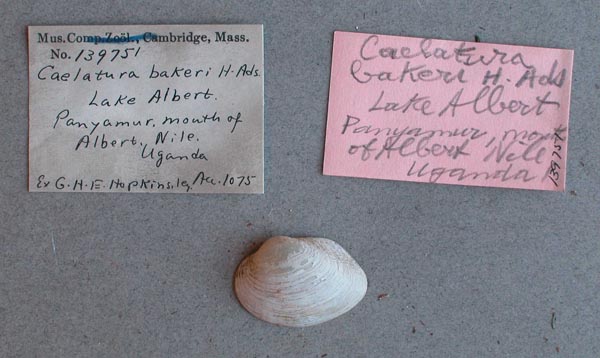 Mus. Comp. Zoöl., Cambridge, Mass.
No. 139751
Caelatura bakeri H. Ads.
Lake Albert.
Panyamur, mouth of
Albert, Nile.
Uganda
Ex G. H. E. Hopkins, leg. Ac. 1075
Caelatura
bakeri H. Ads
Lake Albert
Panyamur, mouth
of Albert Nile
Uganda
139751